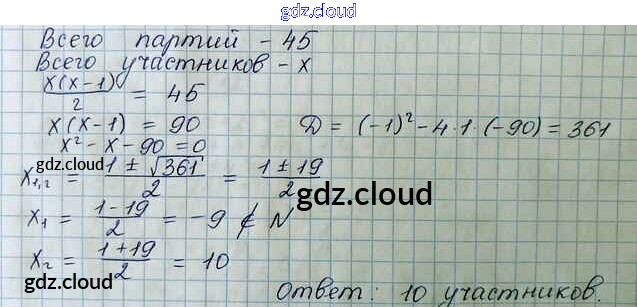 gdz.cloud
Всего партий - 45
Всего участников - x
x(x-1)/2 = 45
x(x-1) = 90
D = (-1)² - 4·1·(-90) = 361
x² - x - 90 = 0
gdz.cloud
x₁,₂ = (1 ± √361)/2 = (1 ± 19)/2
gdz.cloud
x₁ = (1-19)/2 = -9 ∉ N
x₂ = (1+19)/2 = 10
gdz.cloud
Ответ: 10 участников.
gdz.cloud